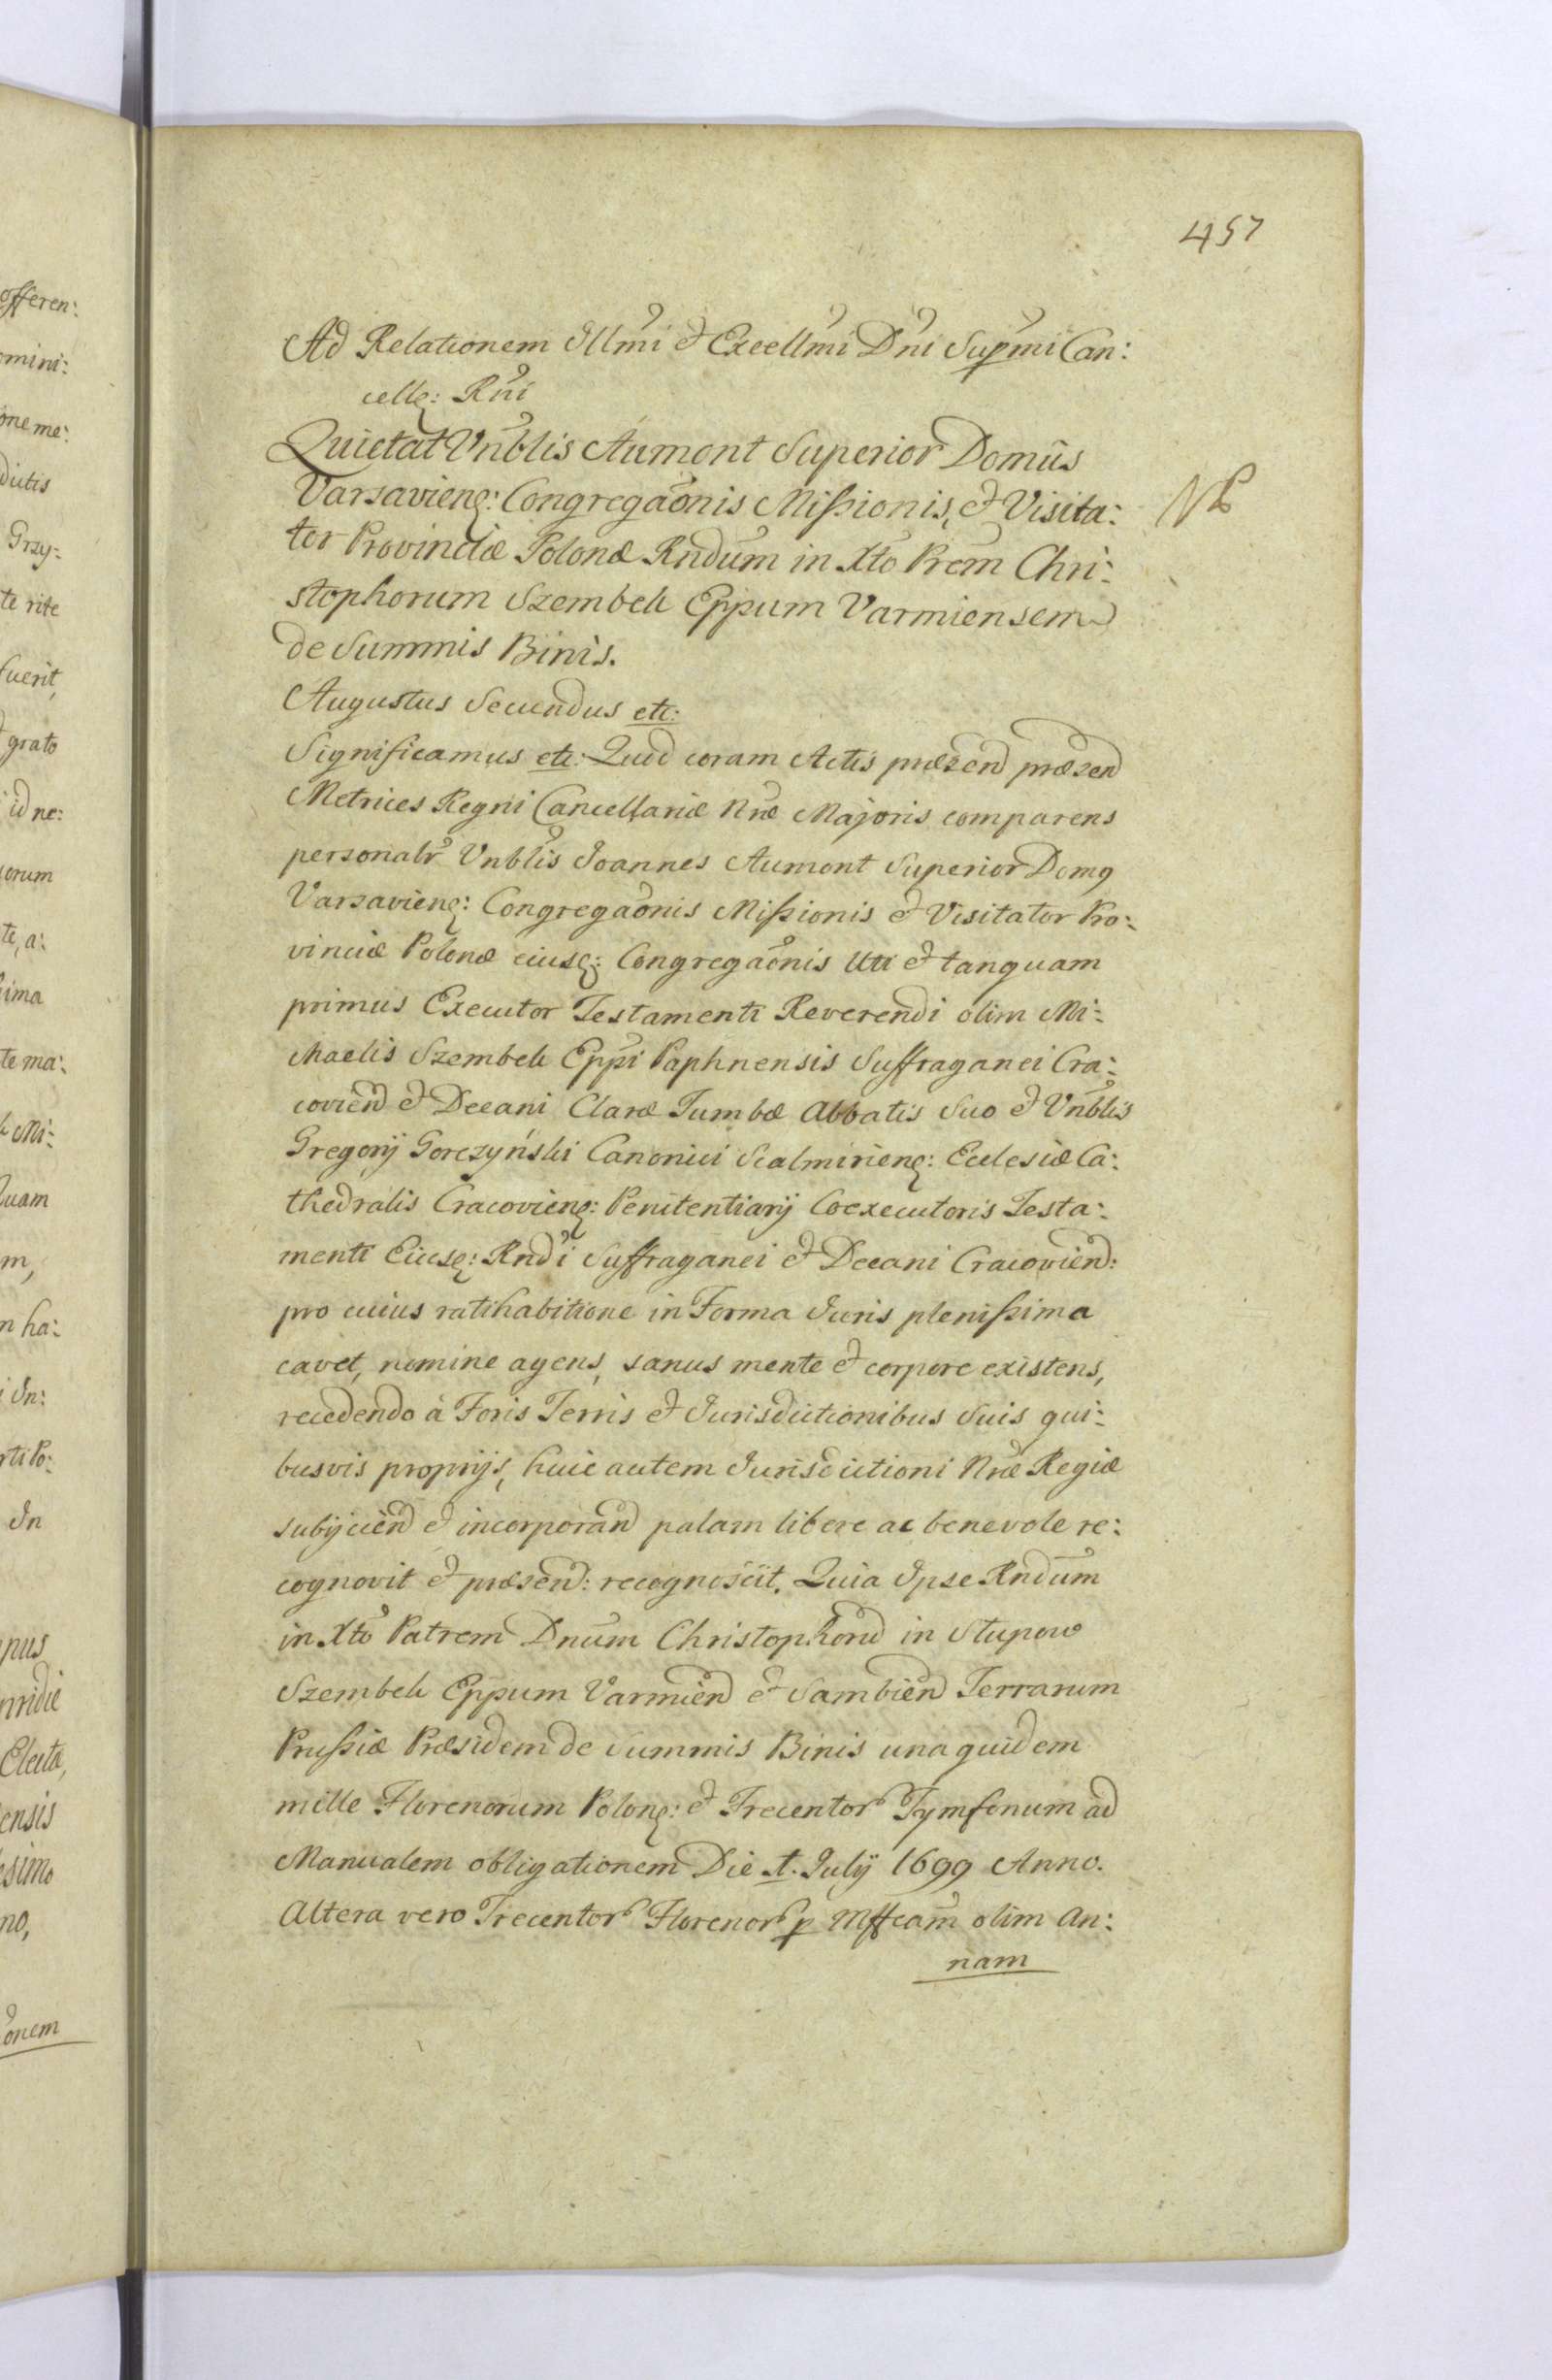 457
Ad Relationem Illmi et Excellmi Dni Supmi Can:
celle: Rni
Quietat Vnblis Aumont Superior Domûs
Varsaviens: Congregaonis Missionis, et Visita:
NB
tor Provinciæ Polonæ Rndum in Xto Prem Chri:
stophorum Szembek Eppum Varmiensem
de Summis Binis.
Augustus Secundus etc:
Significamus etc: Quid coram Actis præsend præsen
Metrices Regni Cancellariæ Nræ Majoris comparens
personalr Vnblis Joannes Aumont Superior Domus
Varsaviens: Congregaonis Missionis et Visitator Pro:
vinciæ Polonæ eiusd: Congregaonis Uti et tanquam
primus Executor Testamenti Reverendi olim Mi:
chaelis Szembek Eppi Paphnensis Suffraganei Cra:
covien et Decani Claræ Tumbæ Abbatis Suo et Vnblis
Gregorij Gorczyński Canonici Scalmiriens: Ecclesiæ Ca:
thedralis Cracoviens: Penitentiarij Coexecutoris Testa:
menti Eiusd: Rndi Suffraganei et Decani Cracovien:
pro cuius ratihabitione in Forma Juris plenissima
cavet, nomine agens, sanus mente et corpore existens,
recedendo à Foris Terris et Jurisdictionibus Suis qui:
busvis proprijs, huic autem Jurisdictioni Nræ Regiæ
subijcien et incorporan palam libere ac benevole re:
cognovit et præsen: recognoscit. Quia Ipse Rndum
in Xto Patrem Dnum Christophorū in Stupow
Szembek Eppum Varmien et Sambien Terrarum
Prussiæ Præsidem de Summis Binis una quidem
mille Florenorum Polons: et Trecentor Tymfonum ad
Manualem obligationem Die 1. Julij 1699 Anno.
Altera vero Trecentor Florenor p Mffcam olim An:
nam
offeren:
omini:
one me:
dictis
Grzy:
te rite
fuerit,
grato
id ne:
orum
te, a:
ima
te ma:
Mi:
Quam
m,
n ha:
i In:
rti Po:
In
pus
nridie
Electa,
ensis
esimo
no,
onem